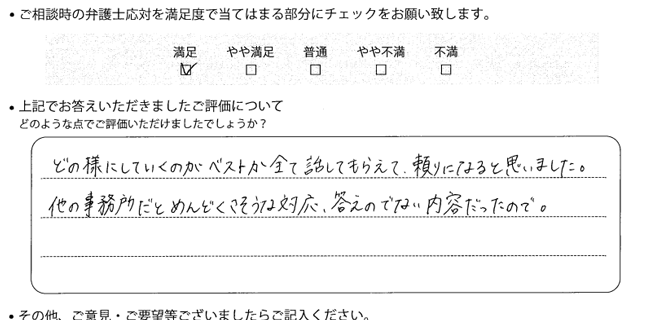 • ご相談時の弁護士応対を満足度で当てはまる部分にチェックをお願い致します。
満足 やや満足 普通 やや不満 不満
☑ □ □ □ □
• 上記でお答えいただきましたご評価について
どのような点でご評価いただけましたでしょうか？
どの様にしていくのがベストか全て話してもらえて、頼りになると思いました。
他の事務所だとめんどくさそうな対応、答えのでない内容だったので。
• その他、ご意見・ご要望等ございましたらご記入ください。